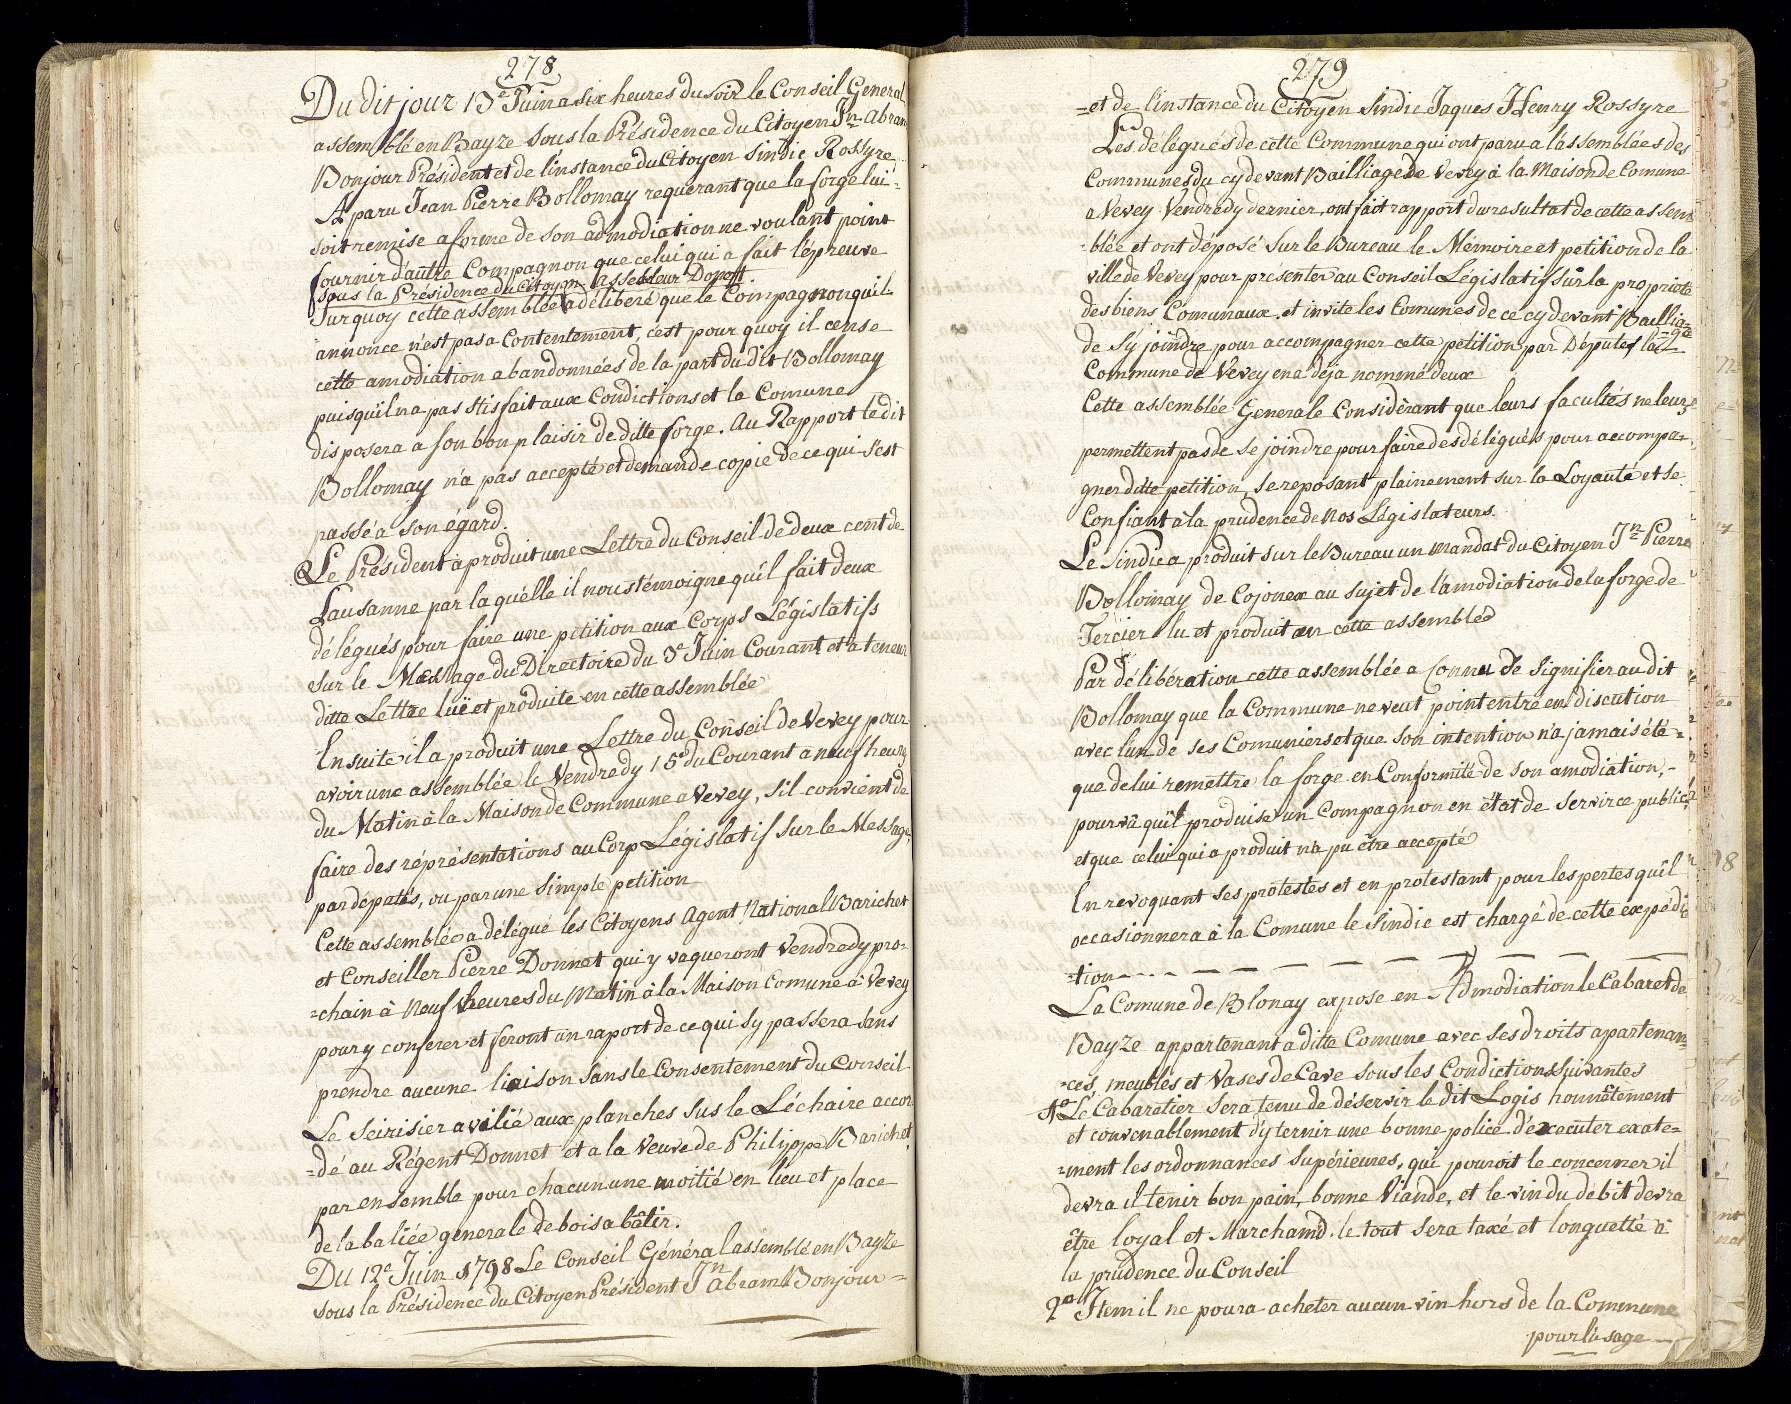 278
Du dit jour 13e Juin a six heures du soir le Conseil General
assemblé en Bayze sous la Présidence du Citoyen Jn Abram
Bonjour Président et de l'instance du Citoyen Sindic Rossyre
A paru Jean Pierre Bollomay requerant que la forge lui
soit remise a forme de son admodiation ne voulant point
fournir d'autre Compagnon que celui qui a fait l'épreuve
sous la Présidence du Citoyen assesseur
Surquoy cette assemblée a déliberé que le Compagnon qu'il
annonce n'est pas a Contentement, c'est pour quoy il cense
cette amodiation abandonnées de la part du dit Bollomay
puisqu'il na pas stisfait aux Condictions et la Comune
disposera a son bon plaisir de ditte forge. Au Rapport le dit
Bollomay n'a pas accepté et demande copie de ce qui s'est
passé a son égard.
Le Président a produit une Lettre du Conseil de deux cent de
Lausanne par laquélle il nous témoigne qu'il fait deux
délégués pour faire une pétition aux Corps Législatifs
sur le Message du Directoire du 3e Juin Courant et a teneur
ditte Lettre lüe et produite en cette assemblée
Ensuite il a produit une Lettre du Conseil de Vevey pour
avoir une assemblée le Vendredy 15e du Courant a neuf heures
du Matin à la Maison de Commune a Vevey, s'il convient de
faire des réprésentations au Corp Législatif sur le Message,
par députés, ou par une simple petition
Cette assemblée a délégué les Citoyens Agent National Barichet
et Conseiller Pierre Donnet qui y vaqueront Vendredy pro-
=chain à Neuf heures du Matin à la Maison Comune à Vevey
pour y conferer et feront un raport de ce qui s'y passera sans
prendre aucune liaison sans le Consentement du Conseil
Le Seirisier avilié aux planches sus le Léchaire accor
=dé au Régent Donnet et a la Veuve de Philippe Barichet,
par ensemble pour chacun une moitié en lieu et place
de la baliée generale de bois a bâtir.
Du 12e Juin 1798 Le Conseil Général assemblé en Bayze
sous la Présidence du Citoyen Président Jn Abram Bonjour =
279
=et de l'instance du Citoyen Sindic Jaques Henry Rossyre
Les délégués de cette Commune qui ont paru a l'assemblée des
Communes du cy devant Bailliage de Vevey à la Maison de Comune
a Vevey Vendredy dernier, ont fait rapport du resultat de cette assem
=blée et ont déposé sur le Bureau le Mémoire et petition de la
ville de Vevey pour presenter au Conseil Législatif sur la propriete
des biens Comunaux. et invite les Comunes de ce cy devant Baillia=
=ge
de s'y joindre pour accompagner cette petition par Députes la
Commune de Vevey en a déja nommé deux
Cette assemblée Generale Considèrant que leurs facultés ne leurs
permettent pas de se joindre pour faire des délégués pour accompa-
gner ditte petition, se reposant plainement sur la Loyauté et se
Confiant à la prudence de Nos Législateurs.
Le Sindic a produit sur le Bureau un Mandat du Citoyen Jn Pierre
Bollomay de Cojonex au sujet de l'amodiation de la forge de
Tercier lu et produit en cette assemblée
Par délibération cette assemblée a connu de signifier au dit
Bollomay que la Commune ne veut point entré en discution
avec l'un de ses Comuniers et que son intention n'a jamais été =
que de lui remettre la forge en Conformité de son amodiation,-
pourvû qu'il produise un Compagnon en êtat de servir ce public,
et que celui qui a produit n'a pu être accepté
En revoquant ses protestes et en protestant pour les pertes qu'il
occasionnera à la Comune le Sindic est chargé de cette expédi
=tion
La Comune de Blonay expose en Admodiation le Cabaret de
Bayze appartenant a ditte Comune avec ses droits apartenan=
=ces, meubles et Vases de Cave sous les Condictions suivantes
1o Le Cabaretier sera tenu de déservir le dit Logis honnêtement
et convenablement d'y ternir une bonne police d'éxecuter exate=
=ment les ordonnances supérieures, qui pouroit le concerner il
devra il tenir bon pain, bonne Viande, et le vin du débit devra
être loyal et Marchand. le tout sera taxé et longuetté à
la prudence du Conseil
2o Item il ne poura acheter aucun vin hors de la Commune
pour lusage